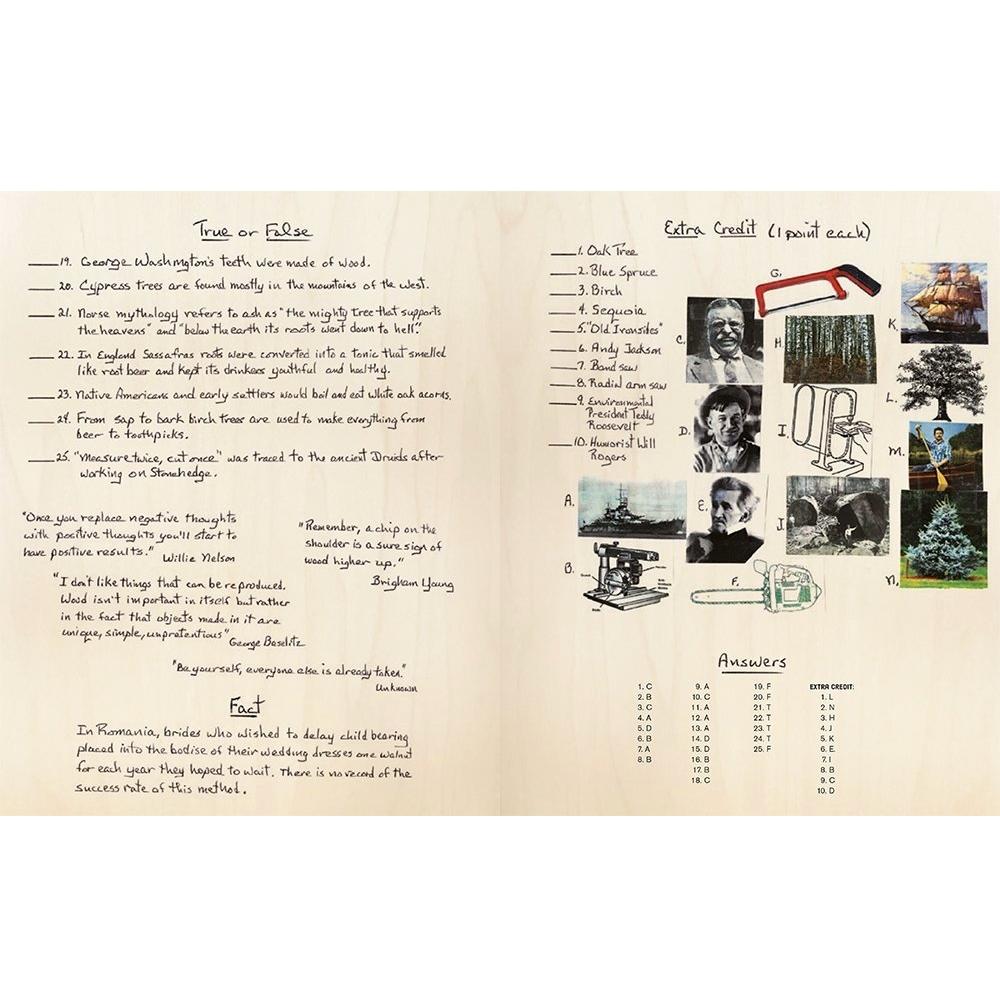 True or False
19. George Washington's teeth were made of wood.
20. Cypress trees are found mostly in the mountains of the west.
21. Norse mythology refers to ash as "the mighty tree that supports
the heavens" and "below the earth its roots went down to hell".
22. In England Sassafras roots were converted into a tonic that smelled
like root beer and kept its drinkers youthful and healthy.
23. Native Americans and early settlers would boil and eat white oak acorns.
24. From sap to bark birch trees are used to make everything from
beer to toothpicks.
25. "Measure twice, cut once" was traced to the ancient Druids after
working on Stonehedge.
"Once you replace negative thoughts
with positive thoughts you'll start to
have positive results." Willie Nelson
"Remember, a chip on the
shoulder is a sure sign of
wood higher up."
Brigham Young
"I don't like things that can be reproduced.
Wood isn't important in itself but rather
in the fact that objects made in it are
unique, simple, unpretentious"
George Baselitz
"Be yourself, everyone else is already taken."
Unknown
Fact
In Romania, brides who wished to delay child bearing
placed into the bodise of their wedding dresses one walnut
for each year they hoped to wait. There is no record of the
success rate of this method.
Extra Credit (1 point each)
1. Oak Tree
2. Blue Spruce
3. Birch
4. Sequoia
5. "Old Ironsides"
6. Andy Jackson
7. Band saw
8. Radial arm saw
9. Environmental
President Teddy
Roosevelt
10. Humorist Will
Rogers
A.
B.
C.
D.
E.
F.
G.
H.
I.
J.
K.
L.
M.
N.
Answers
1. C
2. B
3. C
4. A
5. D
6. B
7. A
8. B
9. A
10. C
11. A
12. A
13. A
14. D
15. D
16. B
17. B
18. C
19. F
20. F
21. T
22. T
23. T
24. T
25. F
EXTRA CREDIT:
1. L
2. N
3. H
4. J
5. K
6. E.
7. I
8. B
9. C
10. D